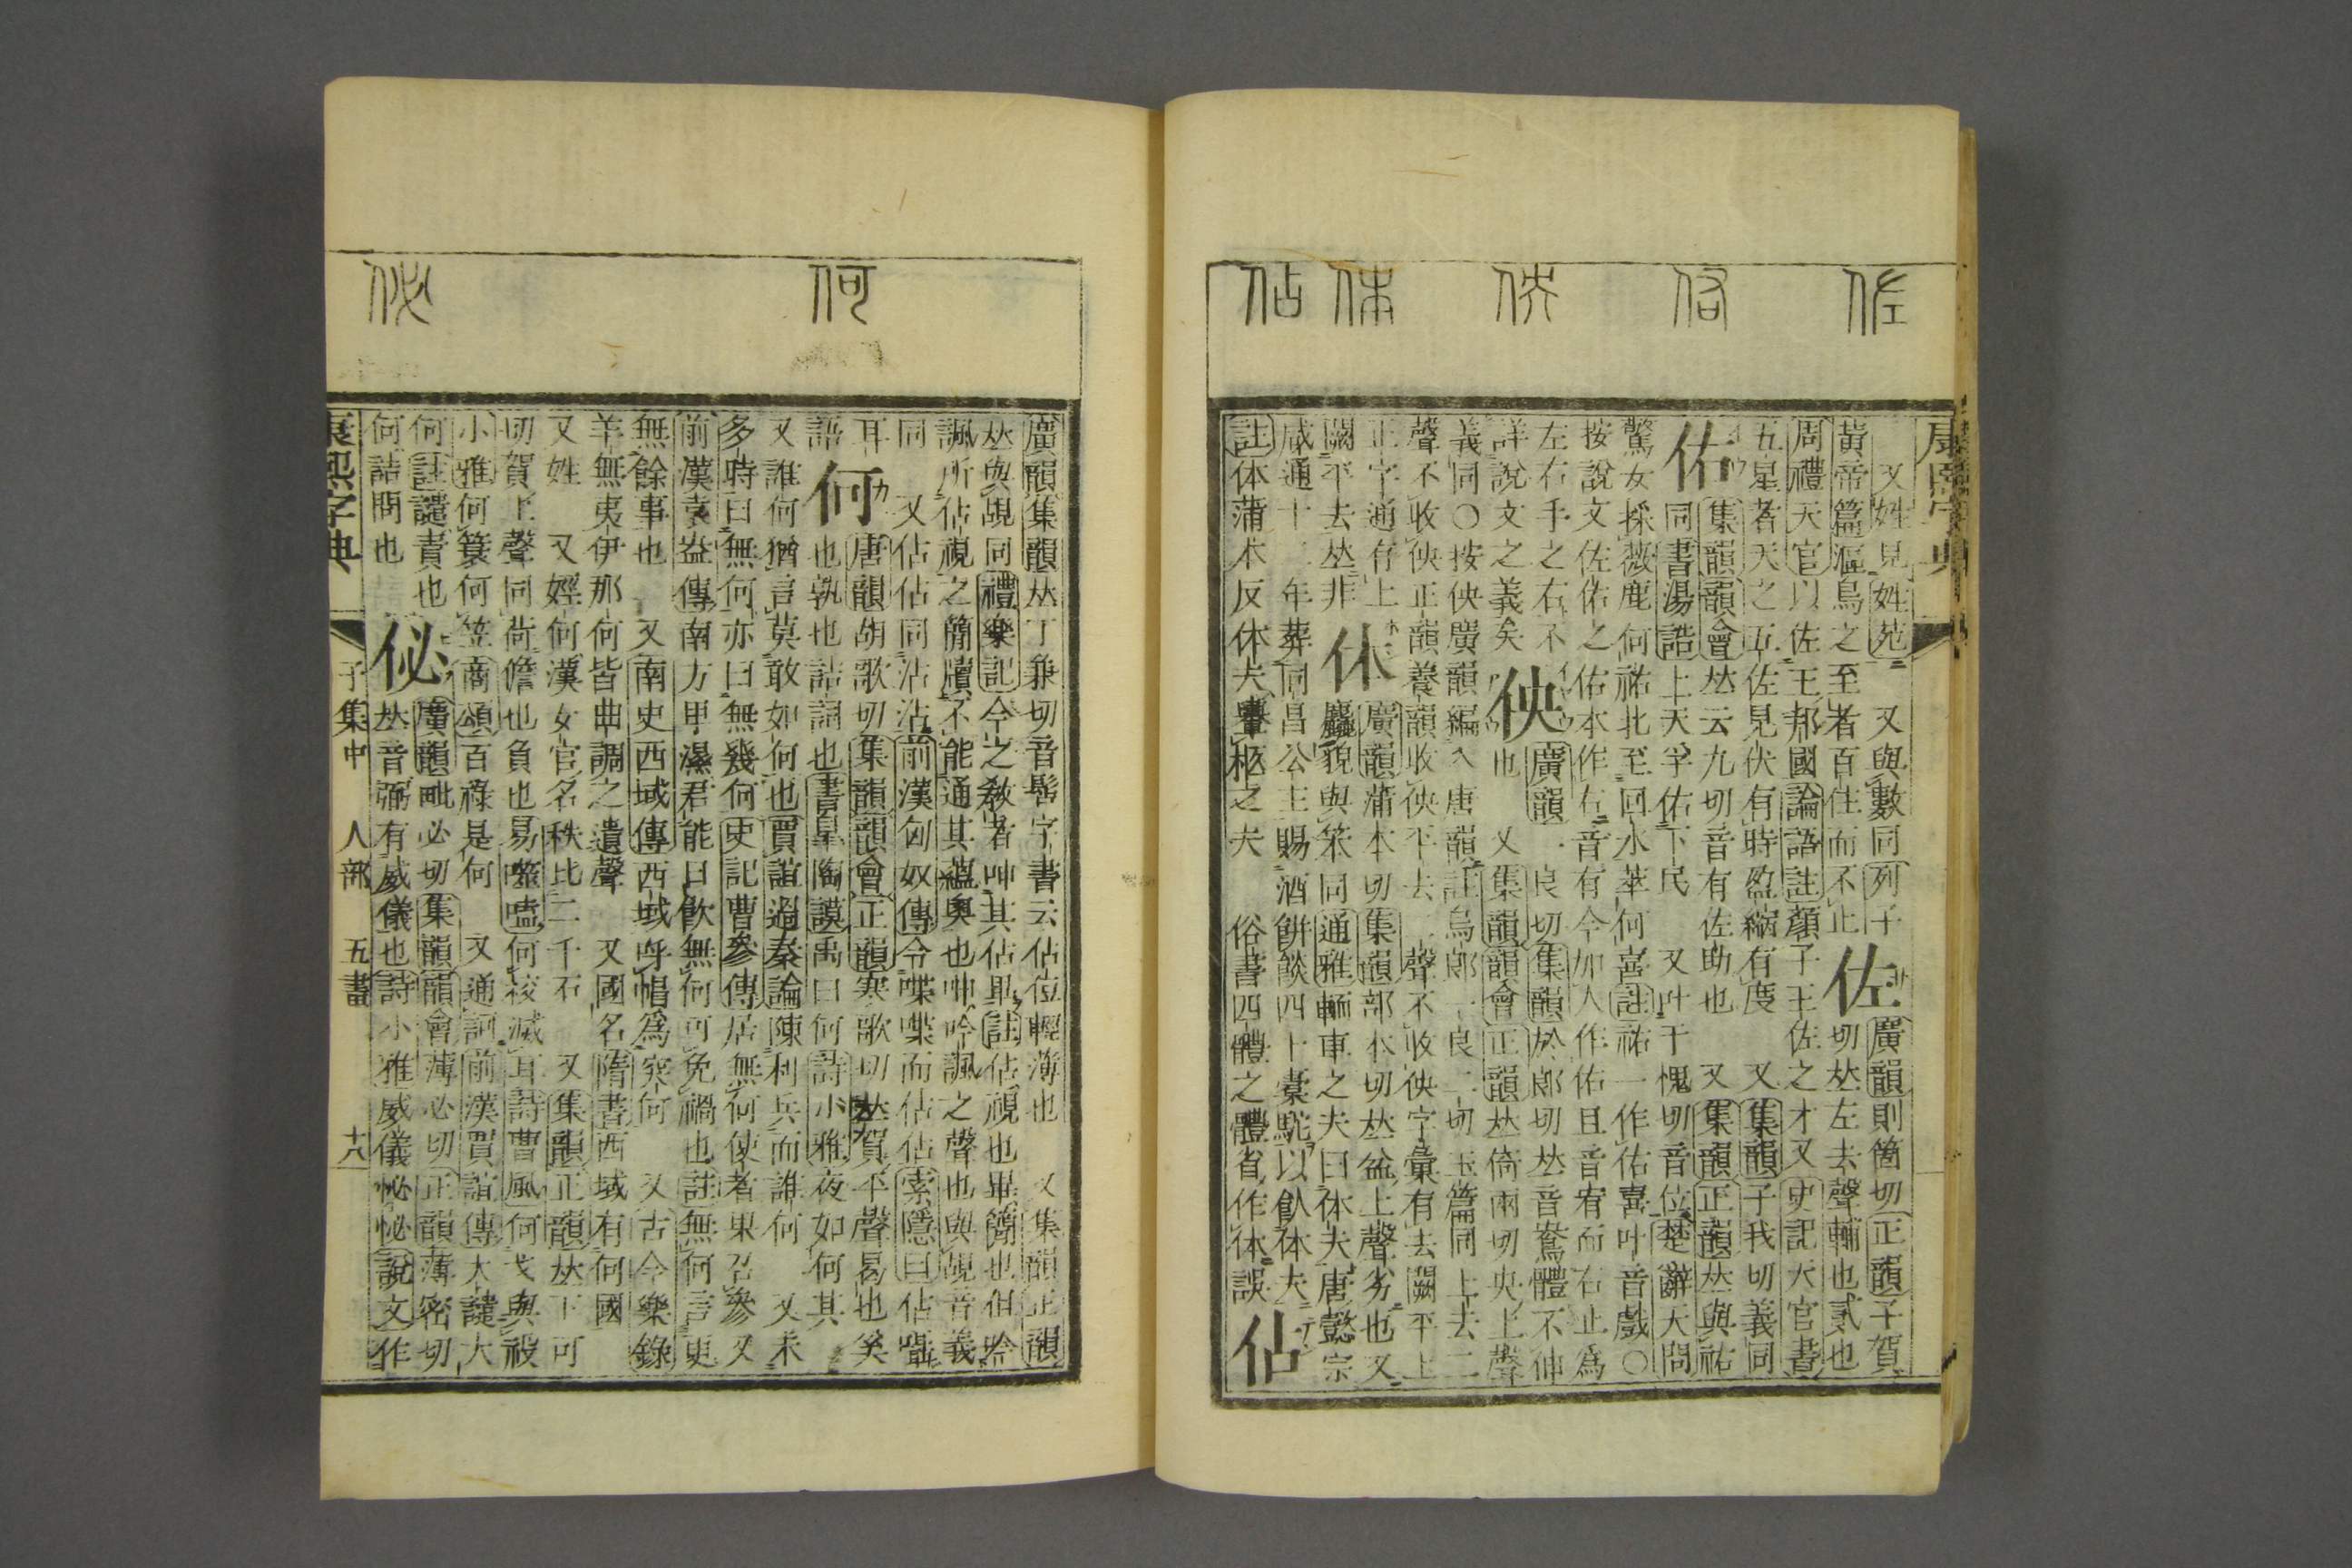 佐 佑 佒 体 佔
康熙字典
又姓見姓苑 又與數同列子 廣韻則箇切正韻子賀
黃帝篇漚鳥之至者百住而不止 佐 切𠀤左去聲輔也貳也
周禮天官以佐王邦國論語註顏子王佐之才又史記天官書
五星者天之五佐見伏有時盈縮有度 又集韻子我切義同
佑 集韻韻會𠀤云九切音有佐助也 又集韻正韻𠀤與祐
同書湯誥上天孚佑下民 又叶于愧切音位楚辭天問
驚女採薇鹿何祐北至回水萃何喜註祐一作佑喜叶音戲○
按說文佐佑之佑本作右音有今加人作佑且音宥而右止爲
左右手之右不 廣韻一良切集韻於郎切𠀤音鴦體不伸
詳說文之義矣 佒 也 又集韻韻會正韻𠀤倚兩切央上聲
義同○按佒廣韻編入唐韻註烏郎一良二切玉篇同上去二
聲不收佒正韻養韻收佒平去二聲不收佒字彙有去闕平上
正字通有上 廣韻蒲本切集韻部本切𠀤盆上聲劣也又
闕平去𠀤非 体 麤貌與笨同通雅輀車之夫曰体夫唐懿宗
咸通十二年葬同昌公主賜酒餅餤四十橐駝以飤体夫
註体蒲本反体夫轝柩之夫 俗書四體之體省作体誤 佔
何 佖
廣韻集韻𠀤丁兼切音髻字書云佔位輕薄也 又集韻正韻
𠀤與覘同禮樂記今之敎者呻其佔畢註佔視也畢簡也但吟
諷所佔視之簡牘不能通其蘊奧也呻吟諷之聲也與覘音義
同 又佔佔同沾沾前漢匈奴傳令喋喋而佔佔索隱曰佔囁
耳 唐韻胡歌切集韻韻會正韻寒歌切𠀤賀平聲曷也奚
語 何 也孰也詰詞也書皐陶謨禹曰何詩小雅夜如何其
又誰何猶言莫敢如何也賈誼過秦論陳利兵而誰何 又未
多時曰無何亦曰無幾何史記曹參傳居無何使者果召參又
前漢袁盎傳南方卑濕君能日飲無何可免禍也註無何言更
無餘事也 又南史西域傳西域呼帽爲突何 又古今樂錄
羊無夷伊那何皆曲調之遺聲 又國名隋書西域有何國
又姓 又娙何漢女官名秩比二千石 又集韻正韻𠀤下可
切賀上聲同荷儋也負也易噬嗑何校滅耳詩曹風何戈與祋
小雅何簑何笠商頌百祿是何 又通訶前漢賈誼傳大譴大
何註譴責也 廣韻毗必切集韻韻會薄必切正韻薄密切
何詰問也 佖 𠀤音弼有威儀也詩小雅威儀怭怭說文作
康熙字典 子集中 人部 五畫 十八